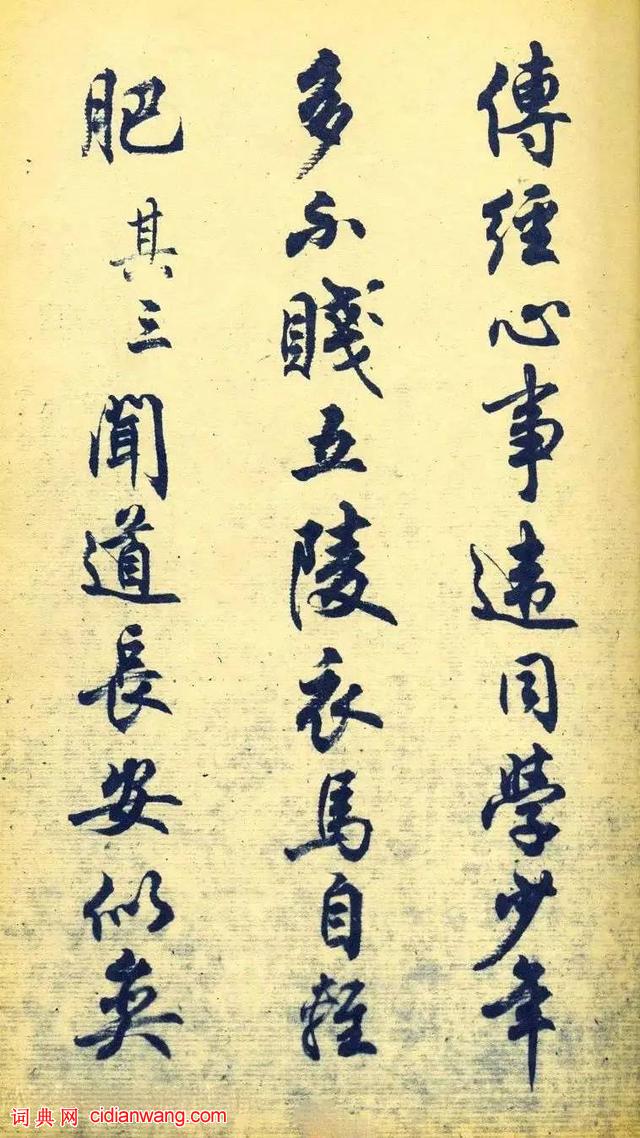 傳經心事違同學少年
多不賤五陵衣馬自輕
肥其三聞道長安似奕
词典网 cidianwang.com